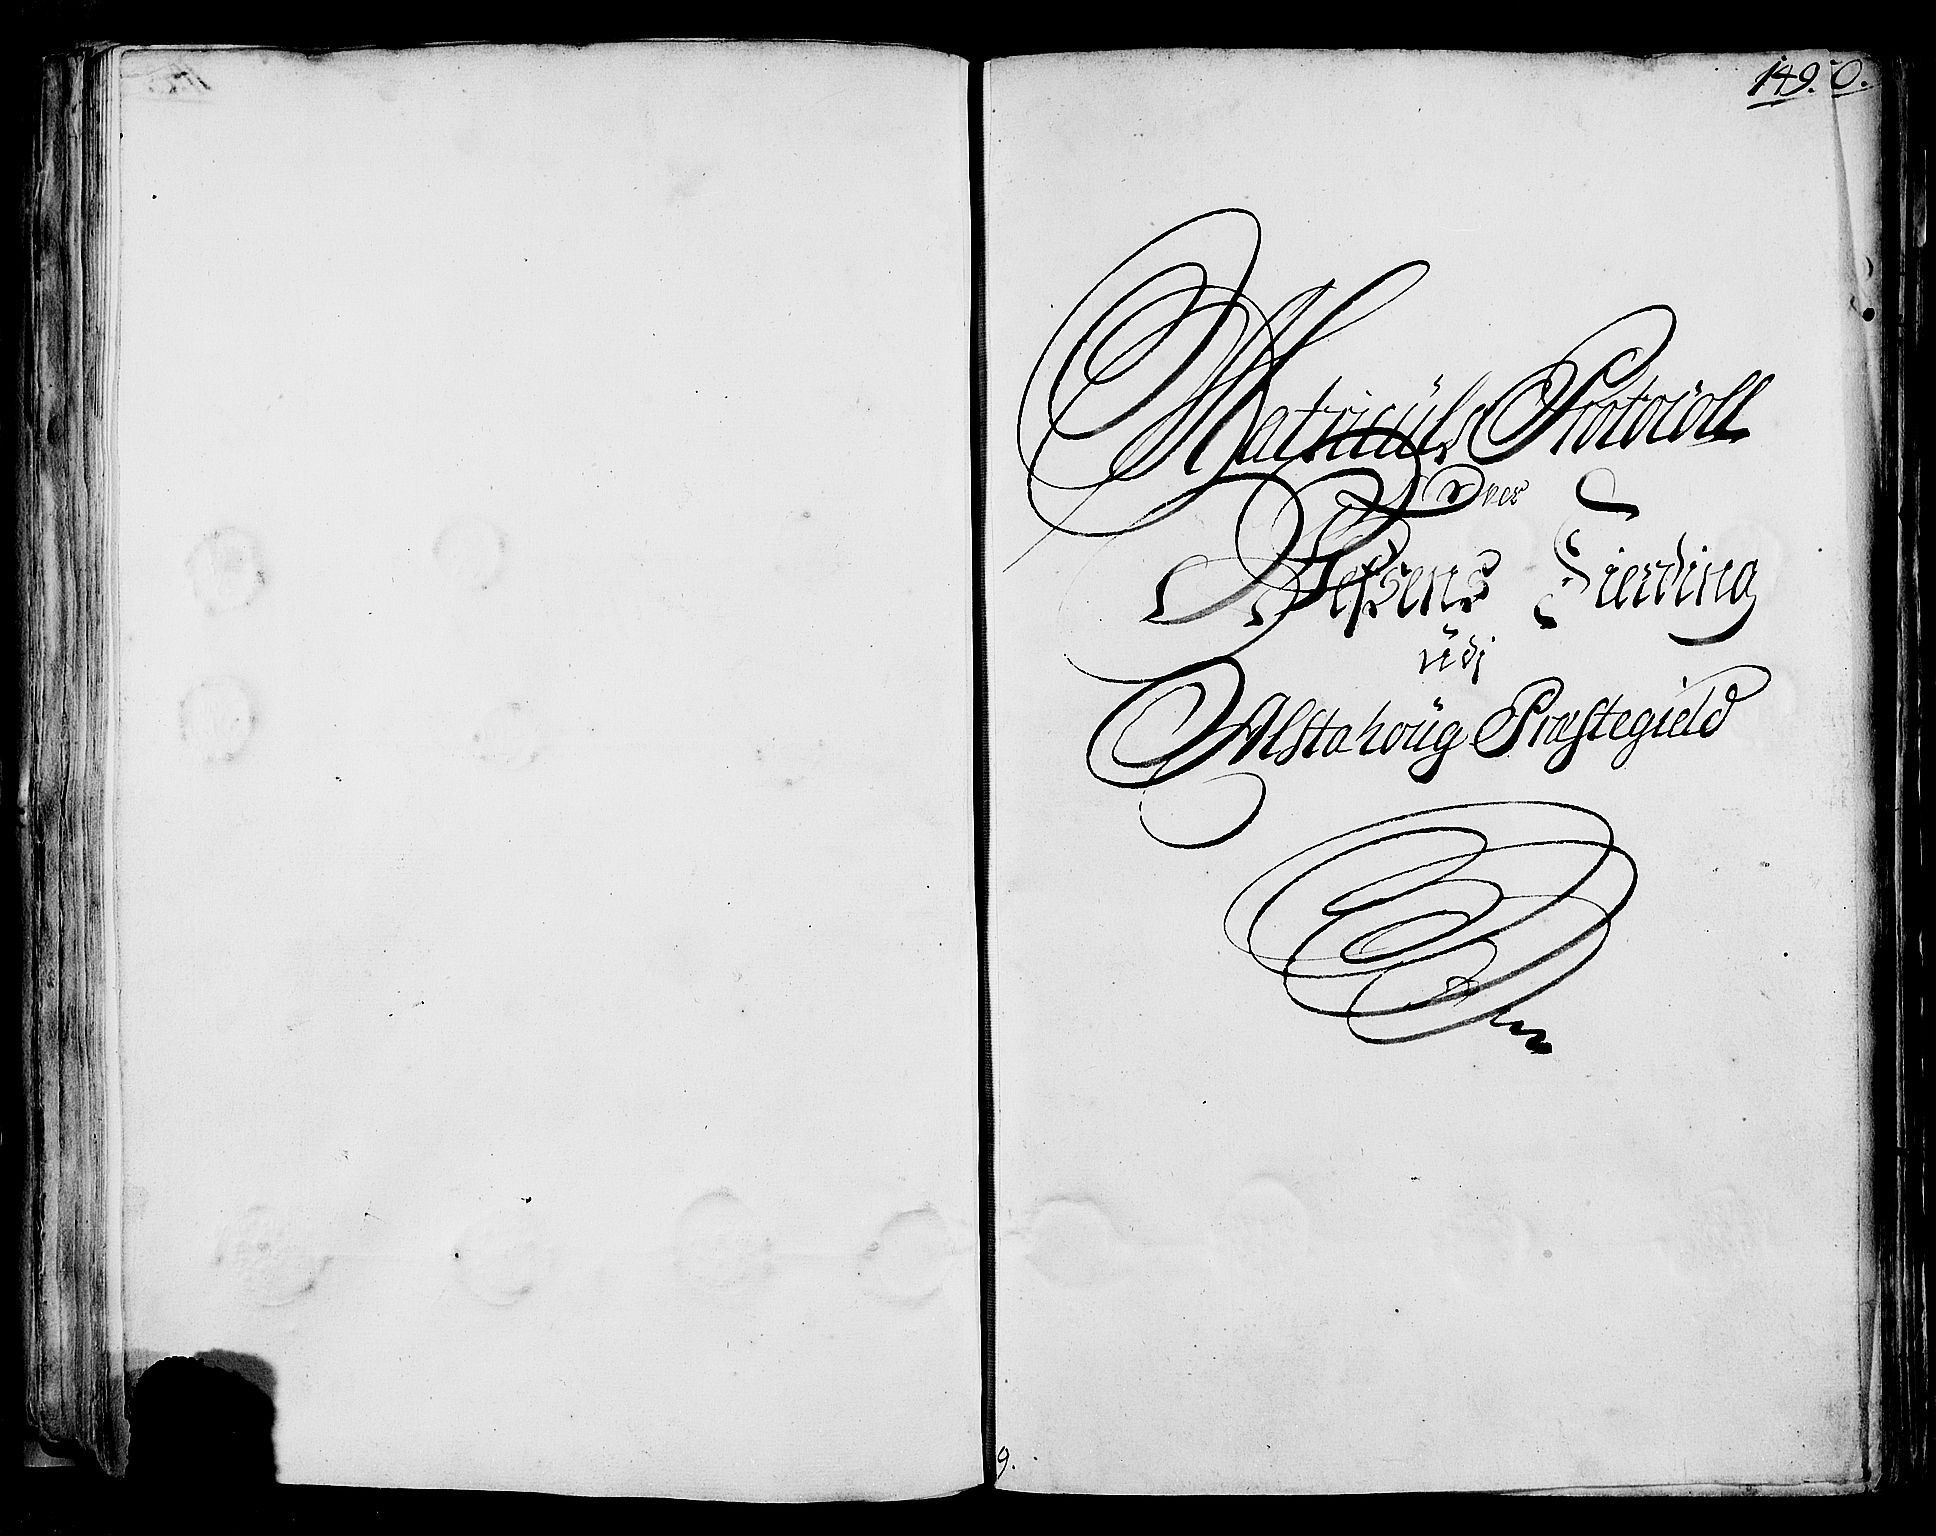 149. O.
Matriculs Protocoll
Over
Nessens Fierding
udi
Alstahoug Præstegield
9.